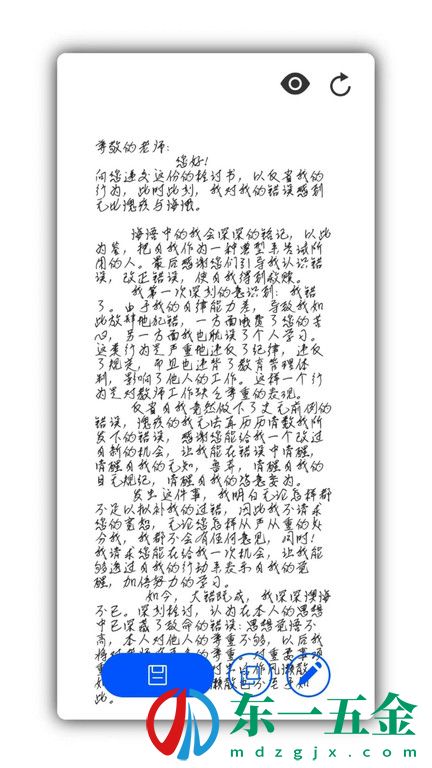 尊敬的老师：
您好！
向您递交这份的检讨书，以反省我的
行为，此时此刻，我对我的错误感到
无比愧疚与悔恨。
海浸中的我会深深的铭记，以此
为鉴，把自我作为一种典型来告诫所
周的人。最后感谢您们引导我认识错
误，改正错误，使自我得到救赎。
我第一次深刻的意识到：我错
了。由于我的自律能力差，导致我如
此放肆地犯错，一方面浪费了您的苦
心，另一方面我也耽误了个人学习。
这类行为是严重地违反了纪律，违反
了规定，而且也违背了教育管理体
制，影响了他人的工作。这样一个行
为是对教师工作缺乏尊重的表现。
反省自我竟然做下了史无前例的
错误，愧疚的我无法直历历清数我所
发下的错误，感谢您能给我一个改过
自新的机会，让我能在错误中清醒，
清醒自我的无知，鲁莽，清醒自我的
目无规纪，清醒自我的恣意妄为。
发生这件事，我明白无论怎样都
不足以拟补我的过错，因此我不请求
您的宽恕，无论您怎样从严从重的处
分我，我都不会有任何意见，同时！
我请求您能在给我一次机会，让我能
够透过自我的行动来表示自我的觉
醒，加倍努力的学习。
如今，大错既成，我深深懊悔
不已。深刻检讨，认为在本人的思想
中已深藏了致命的错误：思想觉悟不
高，本人对他人的尊重不够，以后我
此。
东一五金
mdzgjx.com